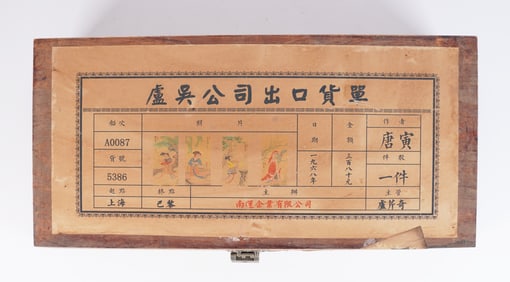 盧吳公司出口貨單
船次 照片 日期 金額 作者
A0087 一九六八年 三百八十元 唐寅
貨號 件數
5386 一件
起點 終點 主辦 主管
上海 巴黎 南運企業有限公司 盧芹奇